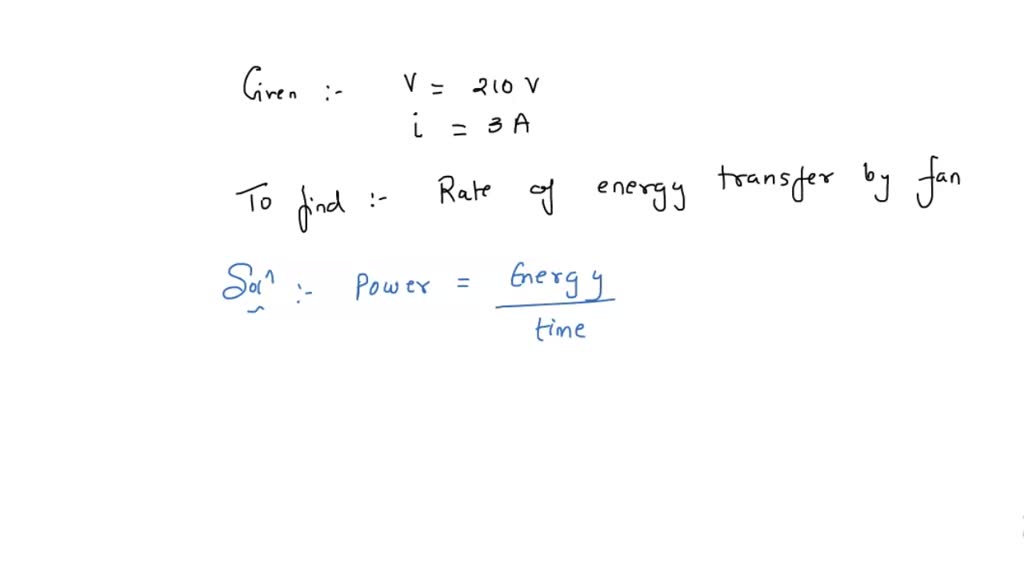 Given :- V = 210 V
i = 3 A
To find :- Rate of energy transfer by fan
Solⁿ :- Power = Energy
time